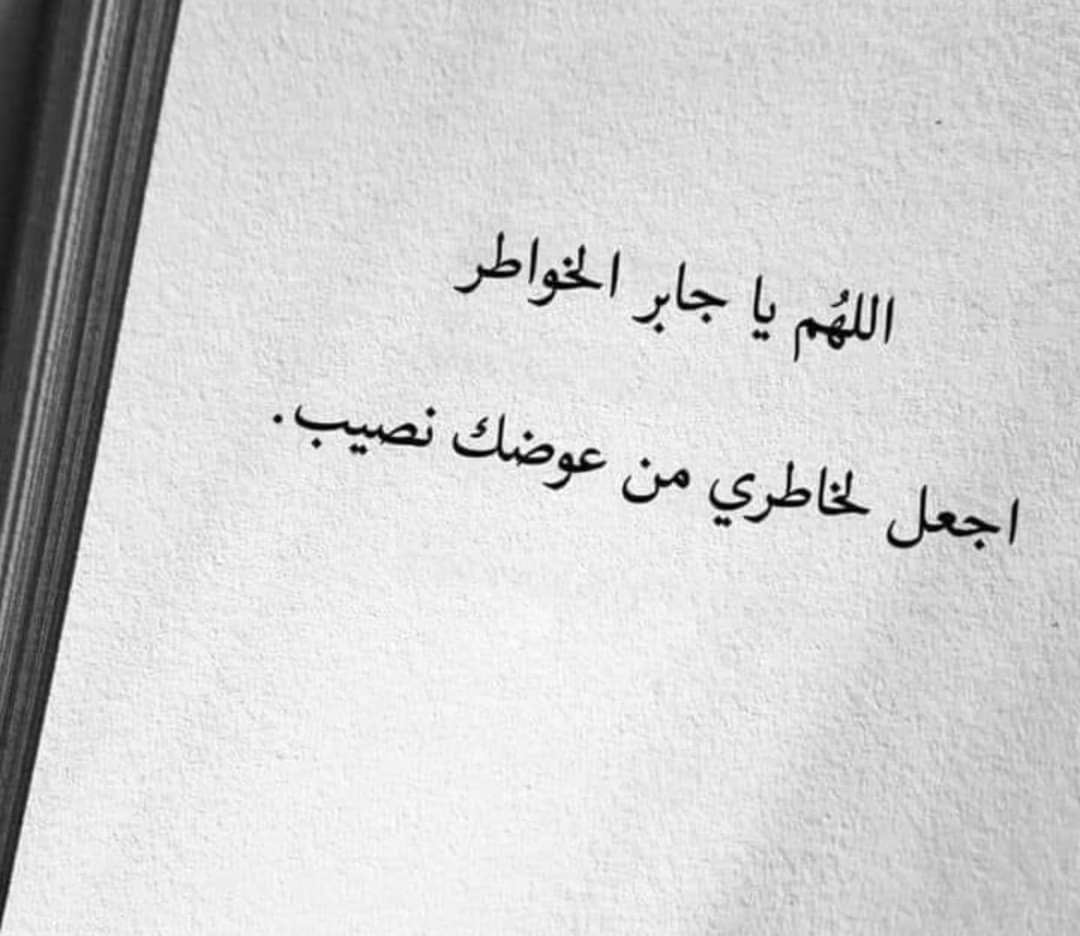 اللهُم يا جابر الخواطر
اجعل لخاطري من عوضك نصيب.